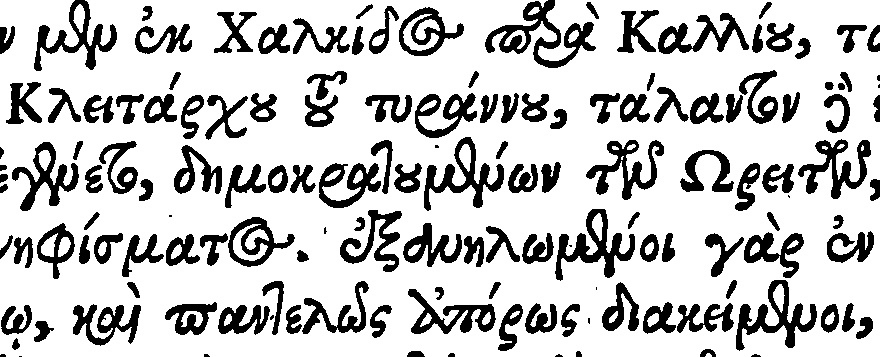 μὲν ἐκ Χαλκίδος παρὰ Καλλίου,
Κλειτάρχου τοῦ τυράννου, τάλαντον
δημοκρατουμένων τῶν Ὠρειτῶν,
ψηφίσματος. ἐξανηλωμένοι γὰρ ἐν
καὶ παντελῶς ἀπόρως διακείμενοι,